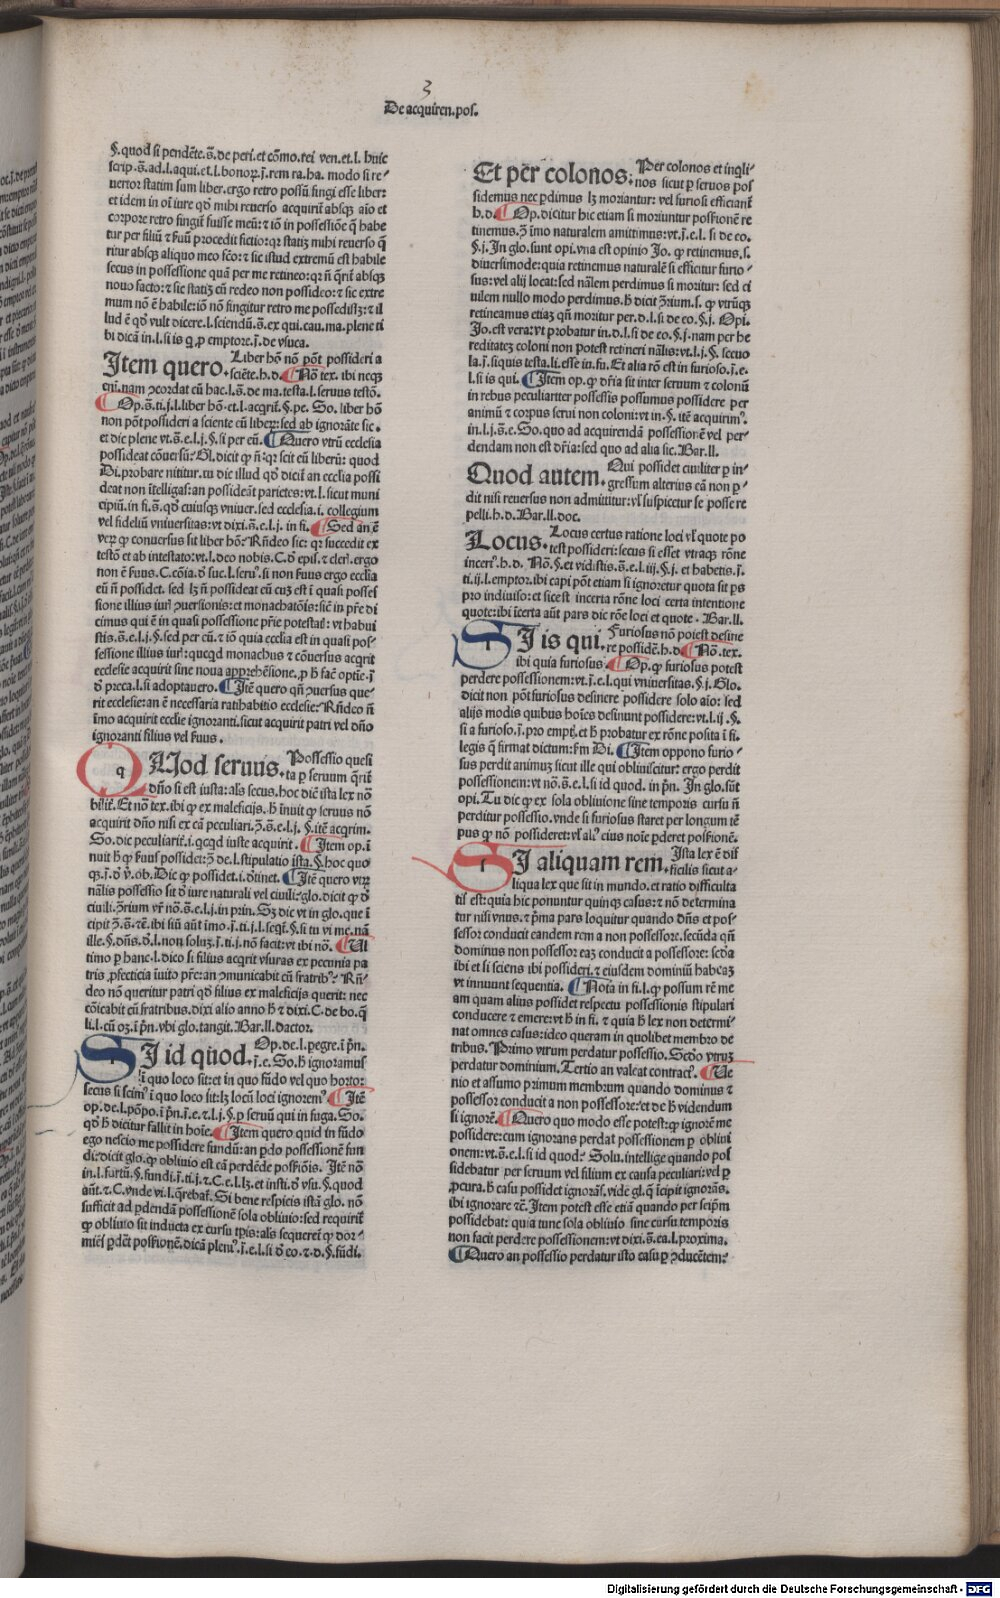 3
De acquiren.pos.
§.quod si pendēte.s̄.de peri.et cōmo.rei ven.et.l. huic
scrip.s̄.ad.l.aqui.et.l.bonoꝝ.ī.rem ra.ha. modo si re⸗
uertor statim sum liber.ergo retro possū fingi esse liber:
et idem in oī iure qđ mihi reuerso acquirit̄ absqꝫ aīo et
corpore retro fingit̄ fuisse meū: ⁊ iō in possessiōe q̄ habe
tur per filiū ⁊ ẜuū procedit fictio: qꝛ statiꝫ mihi reuerso q̄
ritur absqꝫ aliquo meo fcō: ⁊ sic istud extremū est habile
secus in possessione quā per me retineo: qꝛ nō q̄rit̄ absqꝫ
nouo facto: ⁊ sic statiꝫ cū redeo non possideo: ⁊ sic extre
mum nō ē habile: iō nō fingitur retro me possedisse: ⁊ il
lud ē qđ vult dicere.l.sciendū.s̄.ex qui.cau.ma.plene ti
bi dicā in.l.si is q̄ p̱ emptore.ī.de vsuca.
Item quero. Liber hō nō pōt possideri a
sciēte.h.d. Nō tex. ibi neqꝫ
eni.nam ↄcordat cū hac.l.s̄.de ma.testa.l.seruus testō.
Op.s̄.ti.j.l.liber hō.et.l.acqrit̄.§.pe. So. liber hō
non pōt possideri a sciente cū liberꝝ: sed ab ignorāte sic.
et dic plene vt.s̄.e.l.j.§.si per eū. Quero vtrū ecclesia
possideat cōuersū: Gl.dicit ꝙ nō: qꝛ scit eū liberū: quod
Di.probare nititur. tu dic illud qđ dicit̄ an ecclia possi
deat non ītelligas: an possideāt parietes: vt.l. sicut muni
cipiū.in fi.s̄.qđ cuiusqꝫ vniuer.sed ecclesia.i. collegium
vel fideliū vniuersitas: vt dixi.s̄.e.l.j. in fi. Sed an ē
verꝝ ꝙ conuersus sit liber hō: Rn̄deo sic: qꝛ succedit ex
testō et ab intestato: vt.l.deo nobis. C.đ epis. ⁊ cleri. ergo
non ē ẜuus. C.cōia.đ suc.l.seruꝰ.si non ẜuus ergo ecclia
eū nō possidet. sed lꝫ nō possideat eū cuꝫ est ī quasi posses
sione illius iurꝭ ↄuersionis: et monachatōis: sic̄ in pr̄e di
cimus qui ē in quasi possessione pr̄ie potestatꝭ: vt habui
stis.s̄.e.l.j.§.sed per eū. ⁊ iō quia ecclia est in quasi pos⸗
sessione illius iurꝭ: quicqd monachus ⁊ cōuersus acqrit
ecclesie acquirit sine noua apprehēsione.
đ preca.l.si adoptauero. Itē quero qn̄ ↄuersus que⸗
rit ecclesie: an ē necessaria ratihabitio ecclesie: Rn̄deo nō
īmo acquirit ecclie ignoranti. sicut acquirit patri vel dn̄o
ignoranti filius vel ẜuus.
QUod seruus. Possessio quesi
ta p̱ seruum q̄rit̄
dn̄o si est iusta: als̄ secus. hoc dic̄ ista lex nō
bilis. Et nō tex. ibi ꝙ ex maleficijs. h̄ īnuit ꝙ seruus nō
acquirit dn̄o nisi ex cā peculiari.Ↄ̄.s̄.e.l.j. §.itē acqrim.
So.dic peculiarit̄.i.qcqd iuste acquirit. Item op. ī
nuit h̄ ꝙ ẜuus possidet: Ↄ̄ de.l.stipulatio ista.§.hoc quo
qꝫ.ī.đ v̄.ob. Dic ꝙ possidet.i.đtinet. Itē quero vtꝝ
nālis possessio sit đ iure naturali vel ciuili: glo.dicit ꝙ đ
ciuili.Ↄrium vr̄ nō.s̄.e.l.j.in prin. Sꝫ dic vt in glo.que ī
cipit Ↄ̄.s̄.⁊c̄. ibi siū aūt īmo.ī.ti.j.l.seqt̄.§.si tu vi me.nā
ille.§.dn̄s.đ.l.non soluꝫ.ī.ti.j.nō facit: vt ibi nō. Ul
timo p̱ hanc.l.dico si filius acqrit vsuras ex pecunia pa
tris ꝓfecticia īuito pr̄e: an ↄmunicabit cū fratribꝰ: Rn̄⸗
deo nō queritur patri qđ filius ex maleficijs querit: nec
cōicabit cū fratribus. dixi alio anno h̄ ⁊ dixi. C.de bo.q̄
li.l.cū oꝫ.ī pn̄. vbi glo.tangit. Bar.ll.dactor.
SI id quod. Op.de.l.pegre.ī pn̄.
ī.e. So.h̄ ignoramus
ī quo loco sit: et in quo fūdo vel quo horto:
secus si scimꝰ ī quo loco sit: lꝫ locū loci ignoremꝰ. Itē
op.de.l.pōpo.ī pn̄.ī.e.⁊.l.j.§.p̱ seruū qui in fuga. So.
qđ h̄ dicitur fallit in hoīe. Item quero quid in fūdo
ego nescio me possidere fundū: an p̱do possessionē fun
di: dicit glo.ꝙ obliuio est cā perdēde possn̄ōis. Itē nō
in.l.furtū.§.fundi.ī.ti.j.⁊.C.e.l.lꝫ.et insti.đ vsu.§.quod
aūt.⁊.C.vnde vi.l.q̄rebaꝭ. Si bene respicis istā glo. nō
sufficit ad p̱dendā possessionē sola obliuio: sed requirit̄
ꝙ obliuio sit inducta ex cursu tp̄is: als̄ sequeret̄ ꝙ dor⸗
miēs p̱det possn̄onē. dicā pleniꝰ.ī.e.l.si đ eo.⁊.d.§.fūdi.
Et per colonos: Per colonos et inqli⸗
nos sicut p̱ seruos pos
sidemus nec p̱dimus lꝫ moriantur: vel furiosi efficiant̄
h.d. Op.dicitur hic etiam si moriuntur possn̄onē re
tinemus.Ↄ̄ īmo naturalem amittimus: vt.ī.e.l. si de eo.
§.j. In glo.sunt opi.vna est opinio Jo. ꝙ retinemus.s.
diuersimode: quia retinemus naturalē si efficitur furio⸗
sus: vel alij locat: sed nālem perdimus si moritur: sed ci
uilem nullo modo perdimus. h̄ dicit Ↄrium.s. ꝙ vtrūqꝫ
retineamus etiaꝫ qn̄ moritur per.d.l.si de eo.§.j. Opi.
Jo.est vera: vt probatur in.d.l.si de eo.§.j.nam per he
reditateꝫ coloni non potest retineri nālis: vt.l.j.§. secuo
la.ī.si quis testa.li.esse in.fu. Et alia rō est in furioso.ī.e.
l.si is qui. Item op.ꝙ dr̄ia sit inter seruum ⁊ colonū
in rebus peculiariter possessis possumus possidere per
animū ⁊ corpus serui non coloni: vt in.§. itē acquirimꝰ.
in.l.j.s̄.e. So. quo ad acquirendā possessionē vel per⸗
dendam non est dr̄ia: sed quo ad alia sic. Bar.ll.
Quod autem. Qui possidet ciuiliter p̱ in⸗
gressum alterius eā non p̱
dit nisi reuersus non admittitur: vl̄ suspicetur se posse re
pelli.h.d. Bar.ll.doc.
Locus. Locus certus ratione loci vl̄ quote po
test possideri: secus si esset vtraqꝫ rōne
incerꝰ.h.d. Nō.§.et vidistis.s̄.e.l.iij.§.j. et habetis.ī.
ti.ij.l.emptor. ibi capi pōt etiam si ignoretur quota sit ps̄
pro indiuiso: et sic est incerta rōne loci certa intentione
quote: ibi īcerta aūt pars dic rōe loci et quote. Bar.ll.
SI is qui. Furiosus nō potest desine
re possidē.h.d. Nō.tex.
ibi quia furiosus. Op.ꝙ furiosus potest
perdere possessionem: vt.ī.e.l.qui vniuersitas.§.j. Glo.
dicit non pōt furiosus desinere possidere solo aīo: sed
alijs modis quibus hoīes desinunt possidere: vt.l.ij.§.
si a furioso.ī.pro empt. et h̄ probatur ex rōne posita ī fi.
legis q̄ firmat dictum: fm̄ Di. Item oppono furio⸗
sus perdit animuꝫ sicut ille qui obliuiscitur: ergo perdit
possessionem: vt nō.s̄.e.l.si id quod. in pn̄. In glo.sūt
opi. Tu dic ꝙ ex sola obliuione sine temporis cursu nō
perditur possessio. vnde si furiosus staret per longum tē
pus ꝙ nō possideret: vl̄ alꝰ eius noīe p̱deret possn̄onē.
SI aliquam rem. Ista lex ē dif
ficilis sicut a⸗
liqua lex que sit in mundo. et ratio difficulta
tis est: quia hic ponuntur quinqꝫ casus: ⁊ nō determina
tur nisi vnus. ⁊ p̄ma pars loquitur quando dn̄s et pos⸗
sessor conducit eandem rem a non possessore. secūda qn̄
dominus non possessor eaꝫ conducit a possessore: sc̄da
ibi et si sciens ibi possideri. ⁊ eiusdem dominiū habeaꝫ
vt innuunt sequentia. Nota in fi.l.ꝙ possum rē me
am quam alius possidet respectu possessionis stipulari
conducere ⁊ emere: vt h̄ in fi. ⁊ quia h̄ lex non determi⸗
nat omnes casus: ideo queram in quolibet membro de
tribus. Primo vtrum perdatur possessio. Scd̄o vtruꝫ
perdatur dominium. Tertio an valeat contractꝰ. Ue
nio et assumo primum membrum quando dominus ⁊
possessor conducit a non possessore: et de h̄ videndum
si ignorē. Quero quo modo esse potest: ꝙ ignorē me
possidere: cum ignorans perdat possessionem p̱ obliui
onem: vt.s̄.e.l.si id quod: Solu.intellige quando pos
sidebatur per seruum vel filium ex causa peculiari: vel p̱
ꝓcura.h̄ casu possidet ignorās. vide gl.q̄ īcipit ignorās.
ibi ignorare ⁊c̄. Item potest esse etiā quando per seipm̄
possidebat: quia tunc sola obliuio sine cursu temporis
non facit perdere possessionem: vt dixi.s̄.ea.l.proxima.
Quero an possessio perdatur isto casu p̱ ↄducētem:
Digitalisierung gefördert durch die Deutsche Forschungsgemeinschaft - DFG